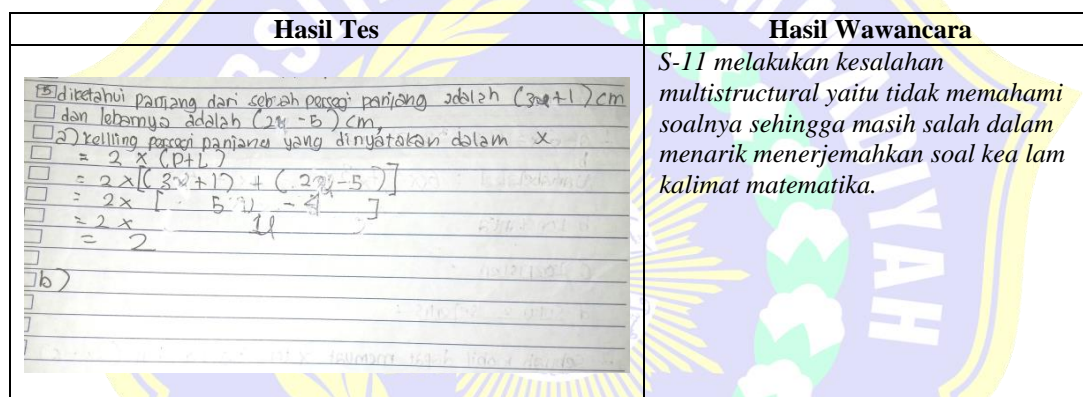 Hasil Tes
Hasil Wawancara
5 diketahui panjang dari sebuah persegi panjang adalah (3x+1) cm
dan lebarnya adalah (2x-5) cm,
a) kelling persegi panjang yang dinyatakan dalam x
= 2 x (P+L)
= 2 x [( 3x+1) + ( 2x-5 )]
= 2 x [ 5x - 4 ]
= 2 x 1
= 2
b)
S-11 melakukan kesalahan
multistructural yaitu tidak memahami
soalnya sehingga masih salah dalam
menarik menerjemahkan soal kea lam
kalimat matematika.